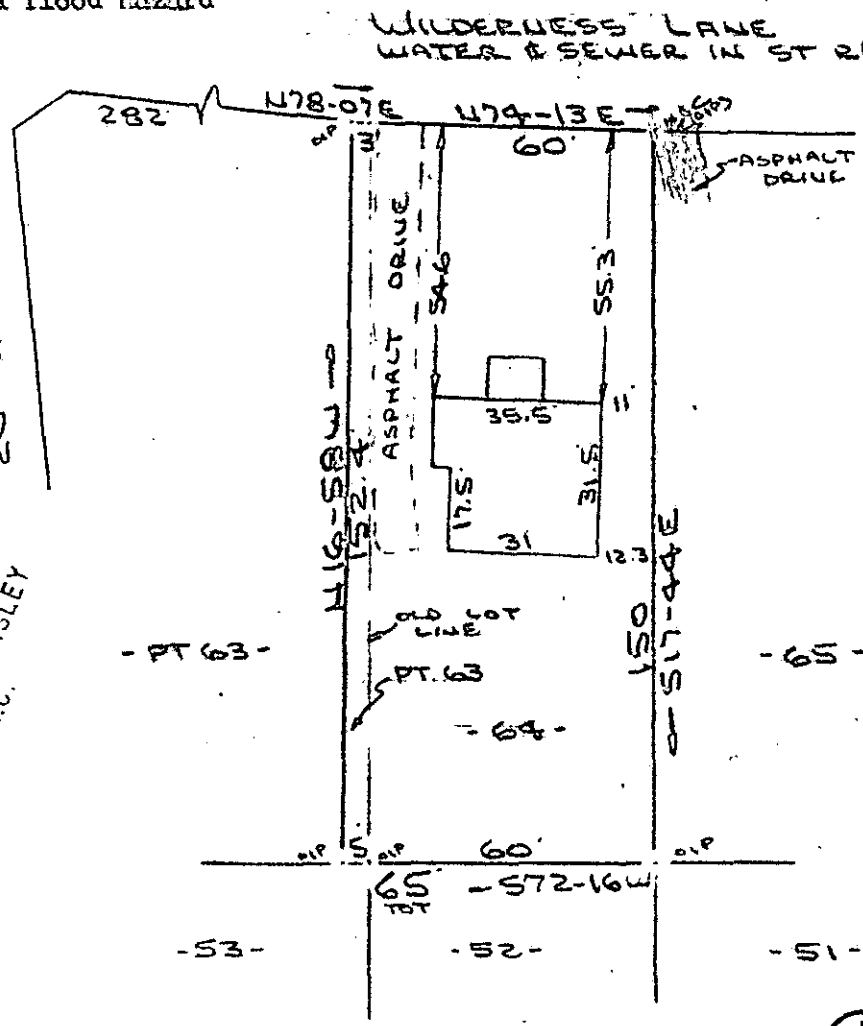 flood hazard
WILDERNESS LANE
WATER & SEWER IN ST
282
N78-07E
N74-13E
60'
ASPHALT
DRIVE
ASPHALT DRIVE
54.6
55.3
35.5
11
17.5
31.5
31
12.3
N16-58W
152.4
150
S17-44E
OLD LOT
LINE
- PT 63 -
PT. 63
- 64 -
- 65 -
OIP
5'
OIP
60'
OIP
65'
TOT
- S72-16W
- 53 -
- 52 -
- 51 -